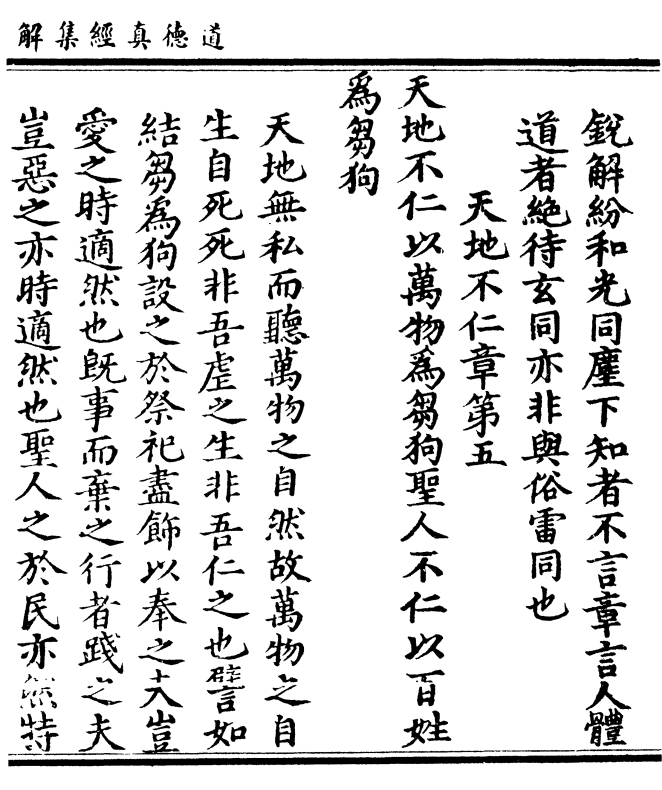 道德真經集解
銳解紛和光同塵下知者不言章言人體
道者絶待玄同亦非與俗雷同也
天地不仁章第五
天地不仁以萬物爲芻狗聖人不仁以百姓
爲芻狗
天地無私而聽萬物之自然故萬物之自
生自死死非吾虐之生非吾仁之也譬如
結芻爲狗設之於祭祀盡飾以奉之夫豈
愛之時適然也旣事而棄之行者踐之夫
豈惡之亦時適然也聖人之於民亦然特